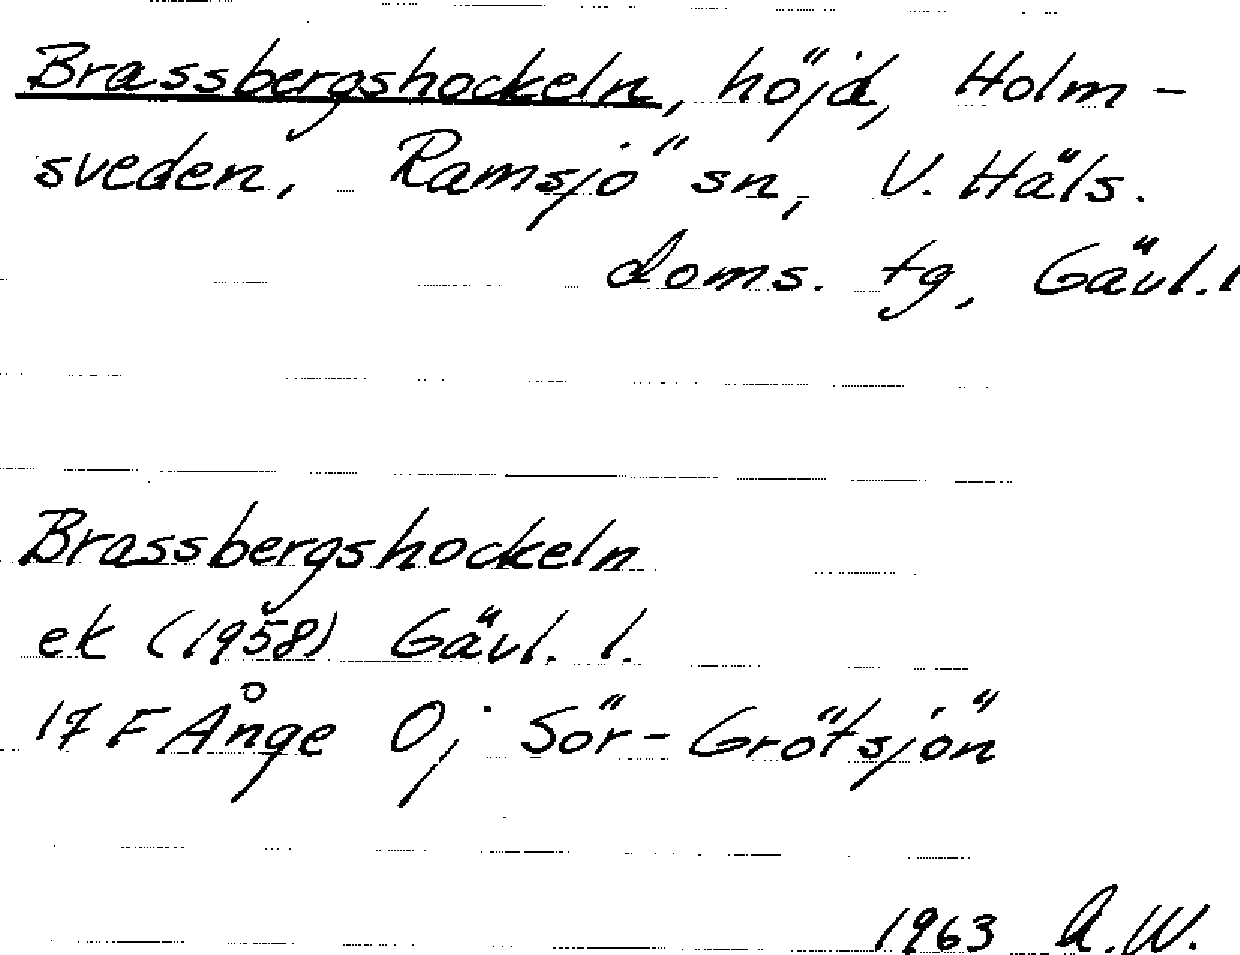 Brassbergshockeln, höjd, Holm-
sveden, Ramsjö sn, V. Häls.
doms. tg, Gävl. l
Brassbergshockeln
ek (1958) Gävl. l.
17 F Ånge O; Sör-Grötsjön
1963 A.W.